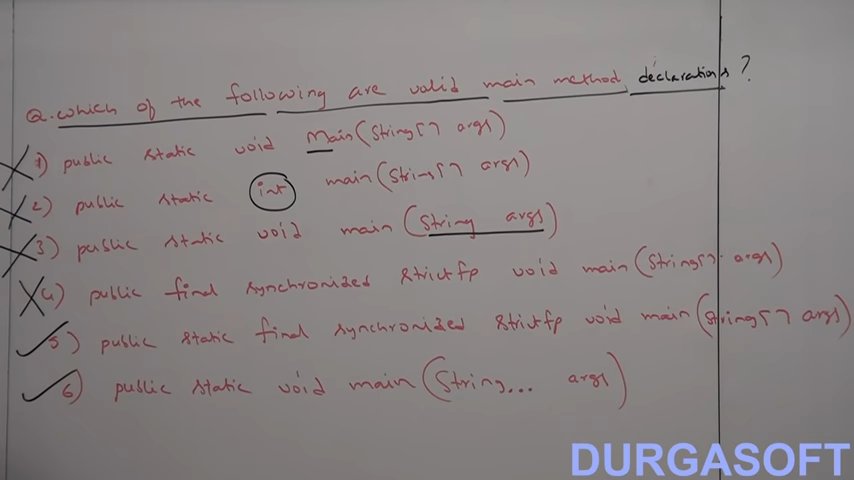 Q. which of the following are valid main method declarations?
1) public static void Main(String[] args)
2) public static int main(String[] args)
3) public static void main(String args)
4) public final synchronized strictfp void main(String[] args)
5) public static final synchronized strictfp void main(String[] args)
6) public static void main(String... args)
DURGASOFT